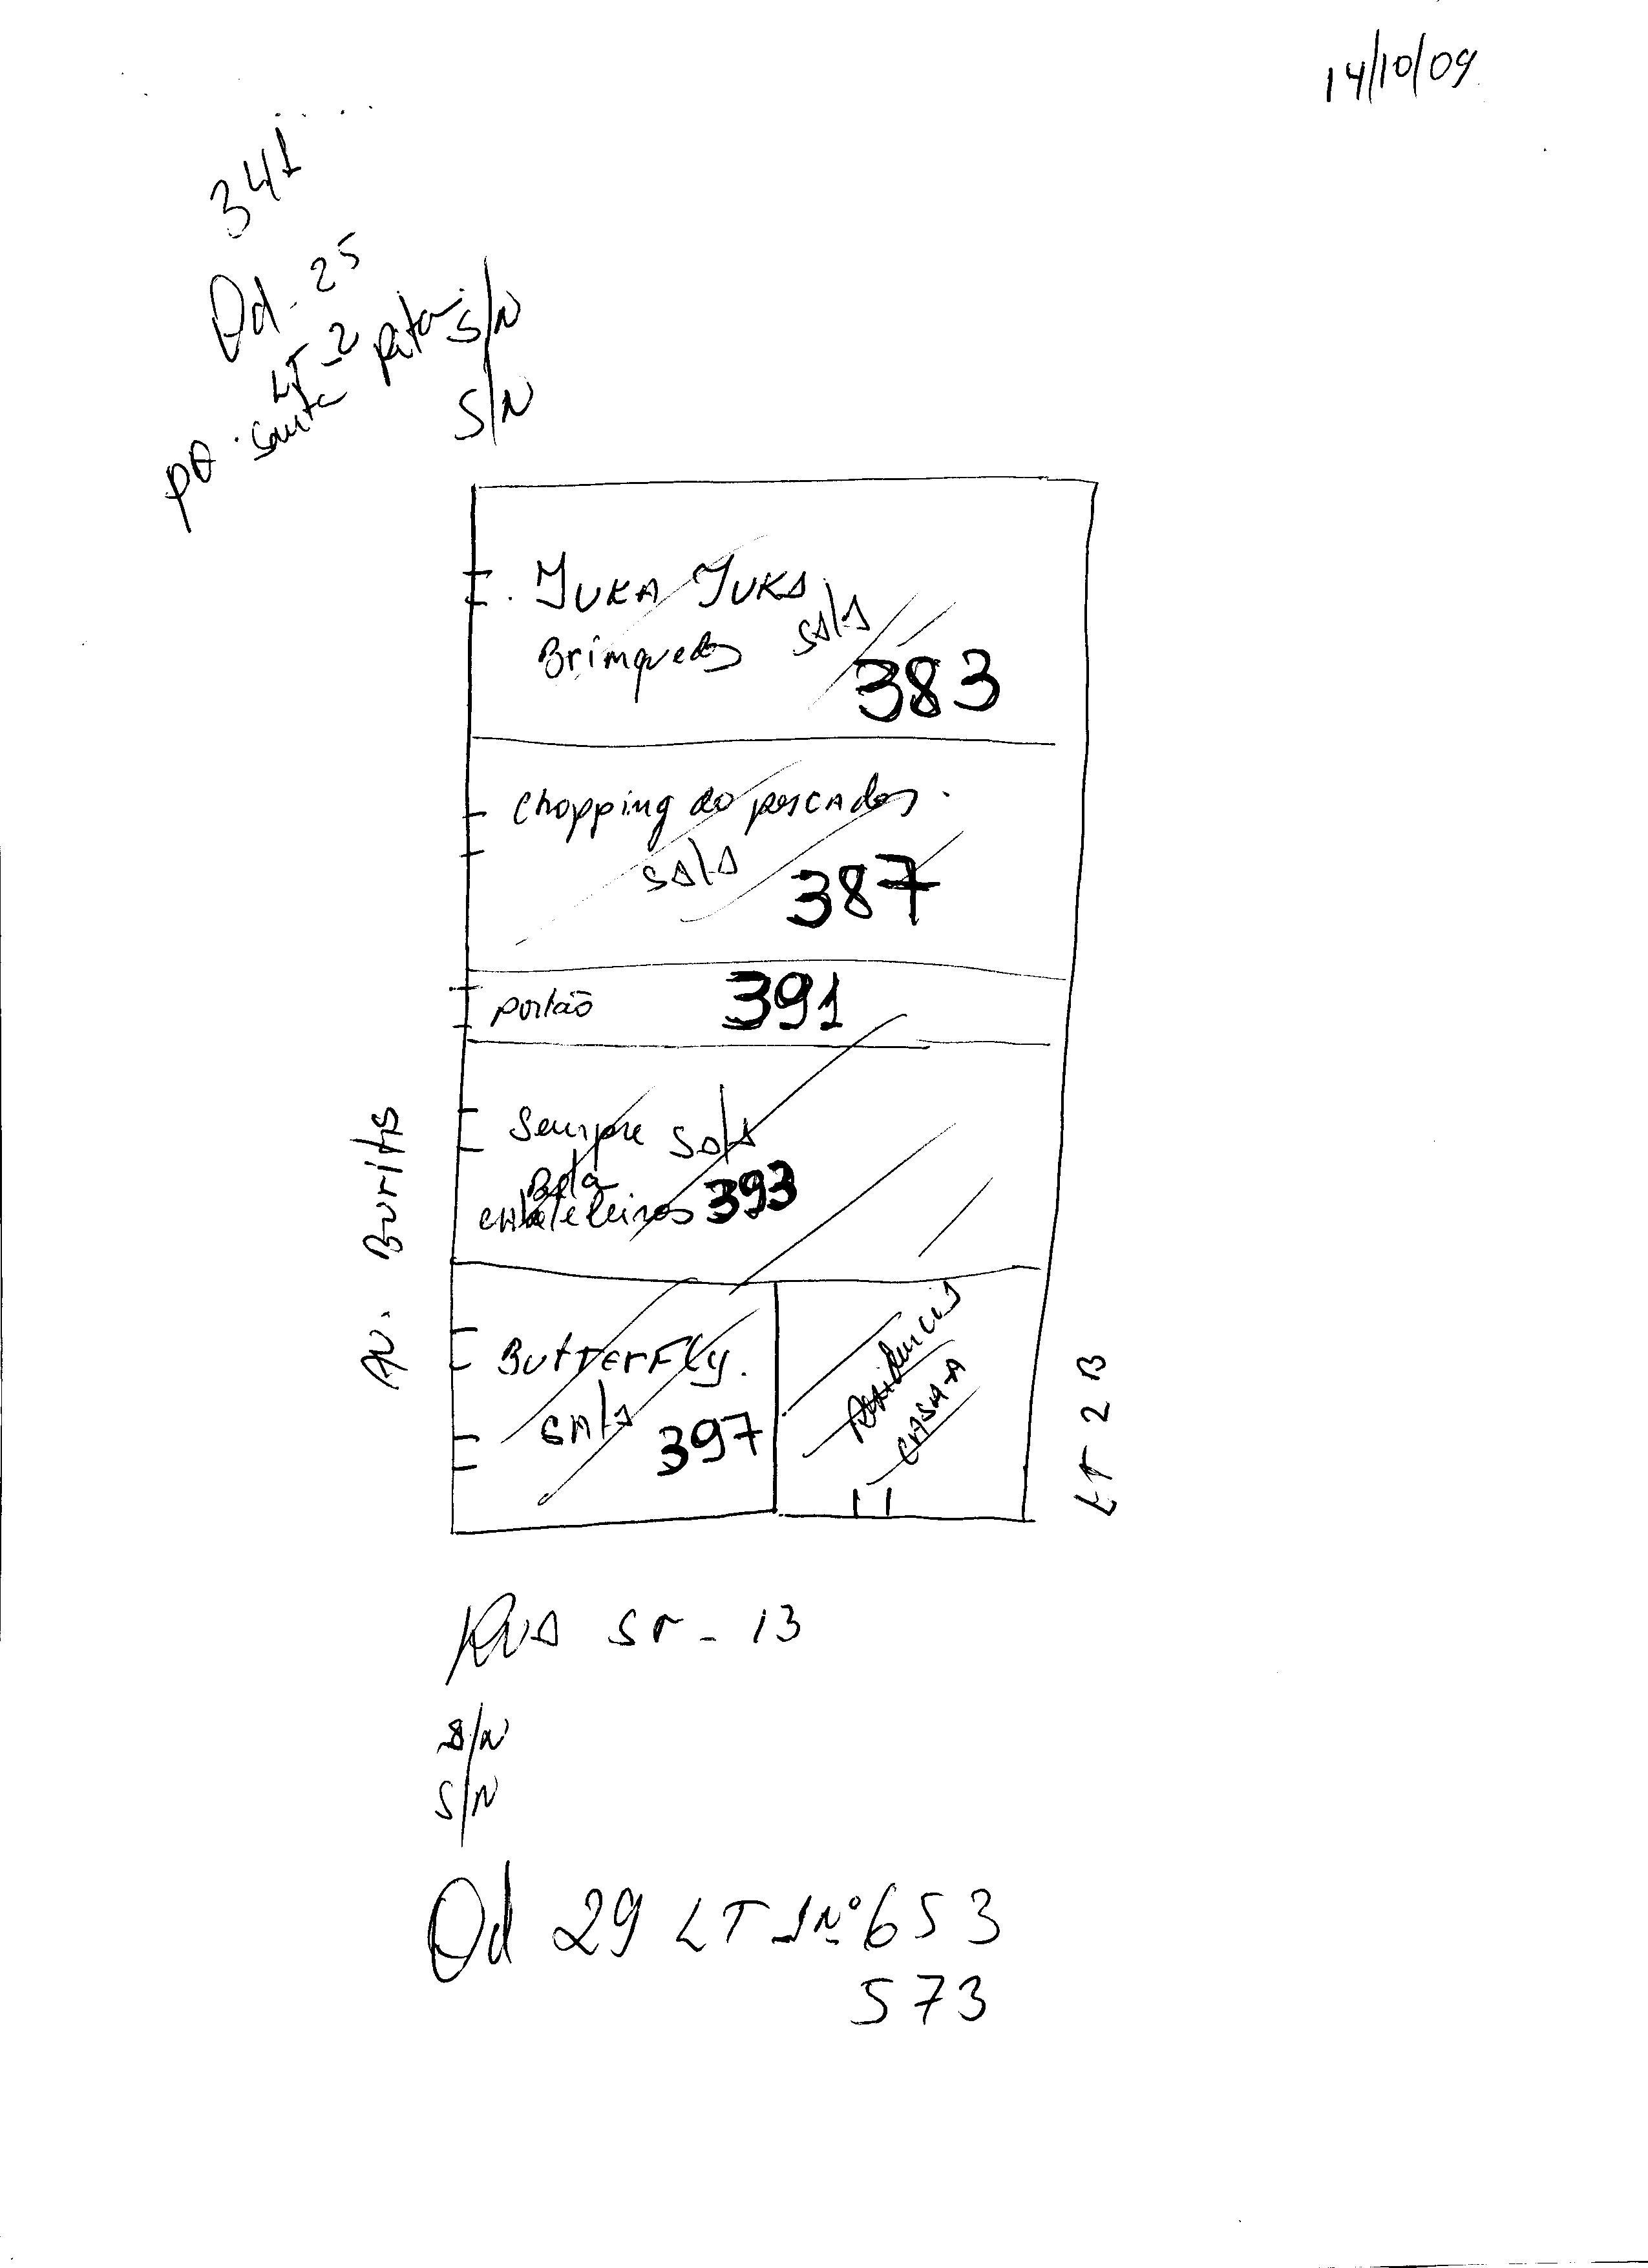 14/10/09
341
Qd - 25
LT - 2
PQ. Santa Rita
S/N
S/N
YUKA YUKA
Brinquedos sala
383
Chopping do pescador.
sala 387
portão 391
Sempre sala
Bela
cabeleleiros 393
Butterfly.
sala 397
Residencia
CASA-A
Av. Buritis
LT 2 B
RUA SR - 13
S/N
S/N
Qd 29 LT 1 Nº 653
573